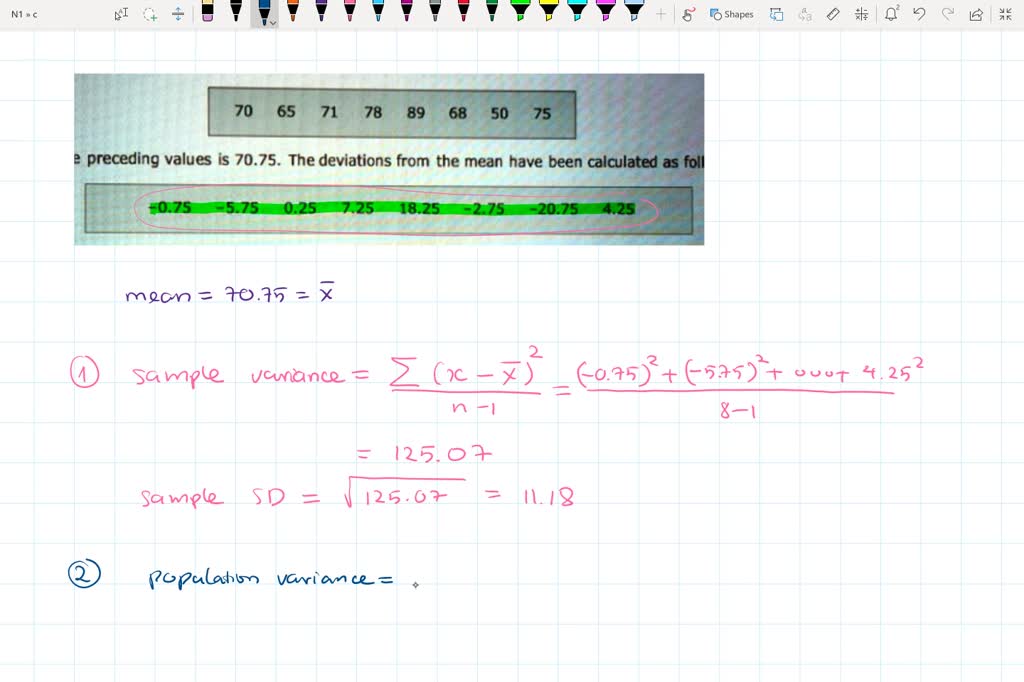 N1 » c
Shapes
2
70 65 71 78 89 68 50 75
e preceding values is 70.75. The deviations from the mean have been calculated as foll
-0.75 -5.75 0.25 7.25 18.25 -2.75 -20.75 4.25
mean = 70.75 = x̄
① sample variance = ∑ (x - x̄)² / n-1 = (-0.75)² + (-5.75)² + ooo+ 4.25² / 8-1
= 125.07
sample SD = √125.07 = 11.18
② population variance =